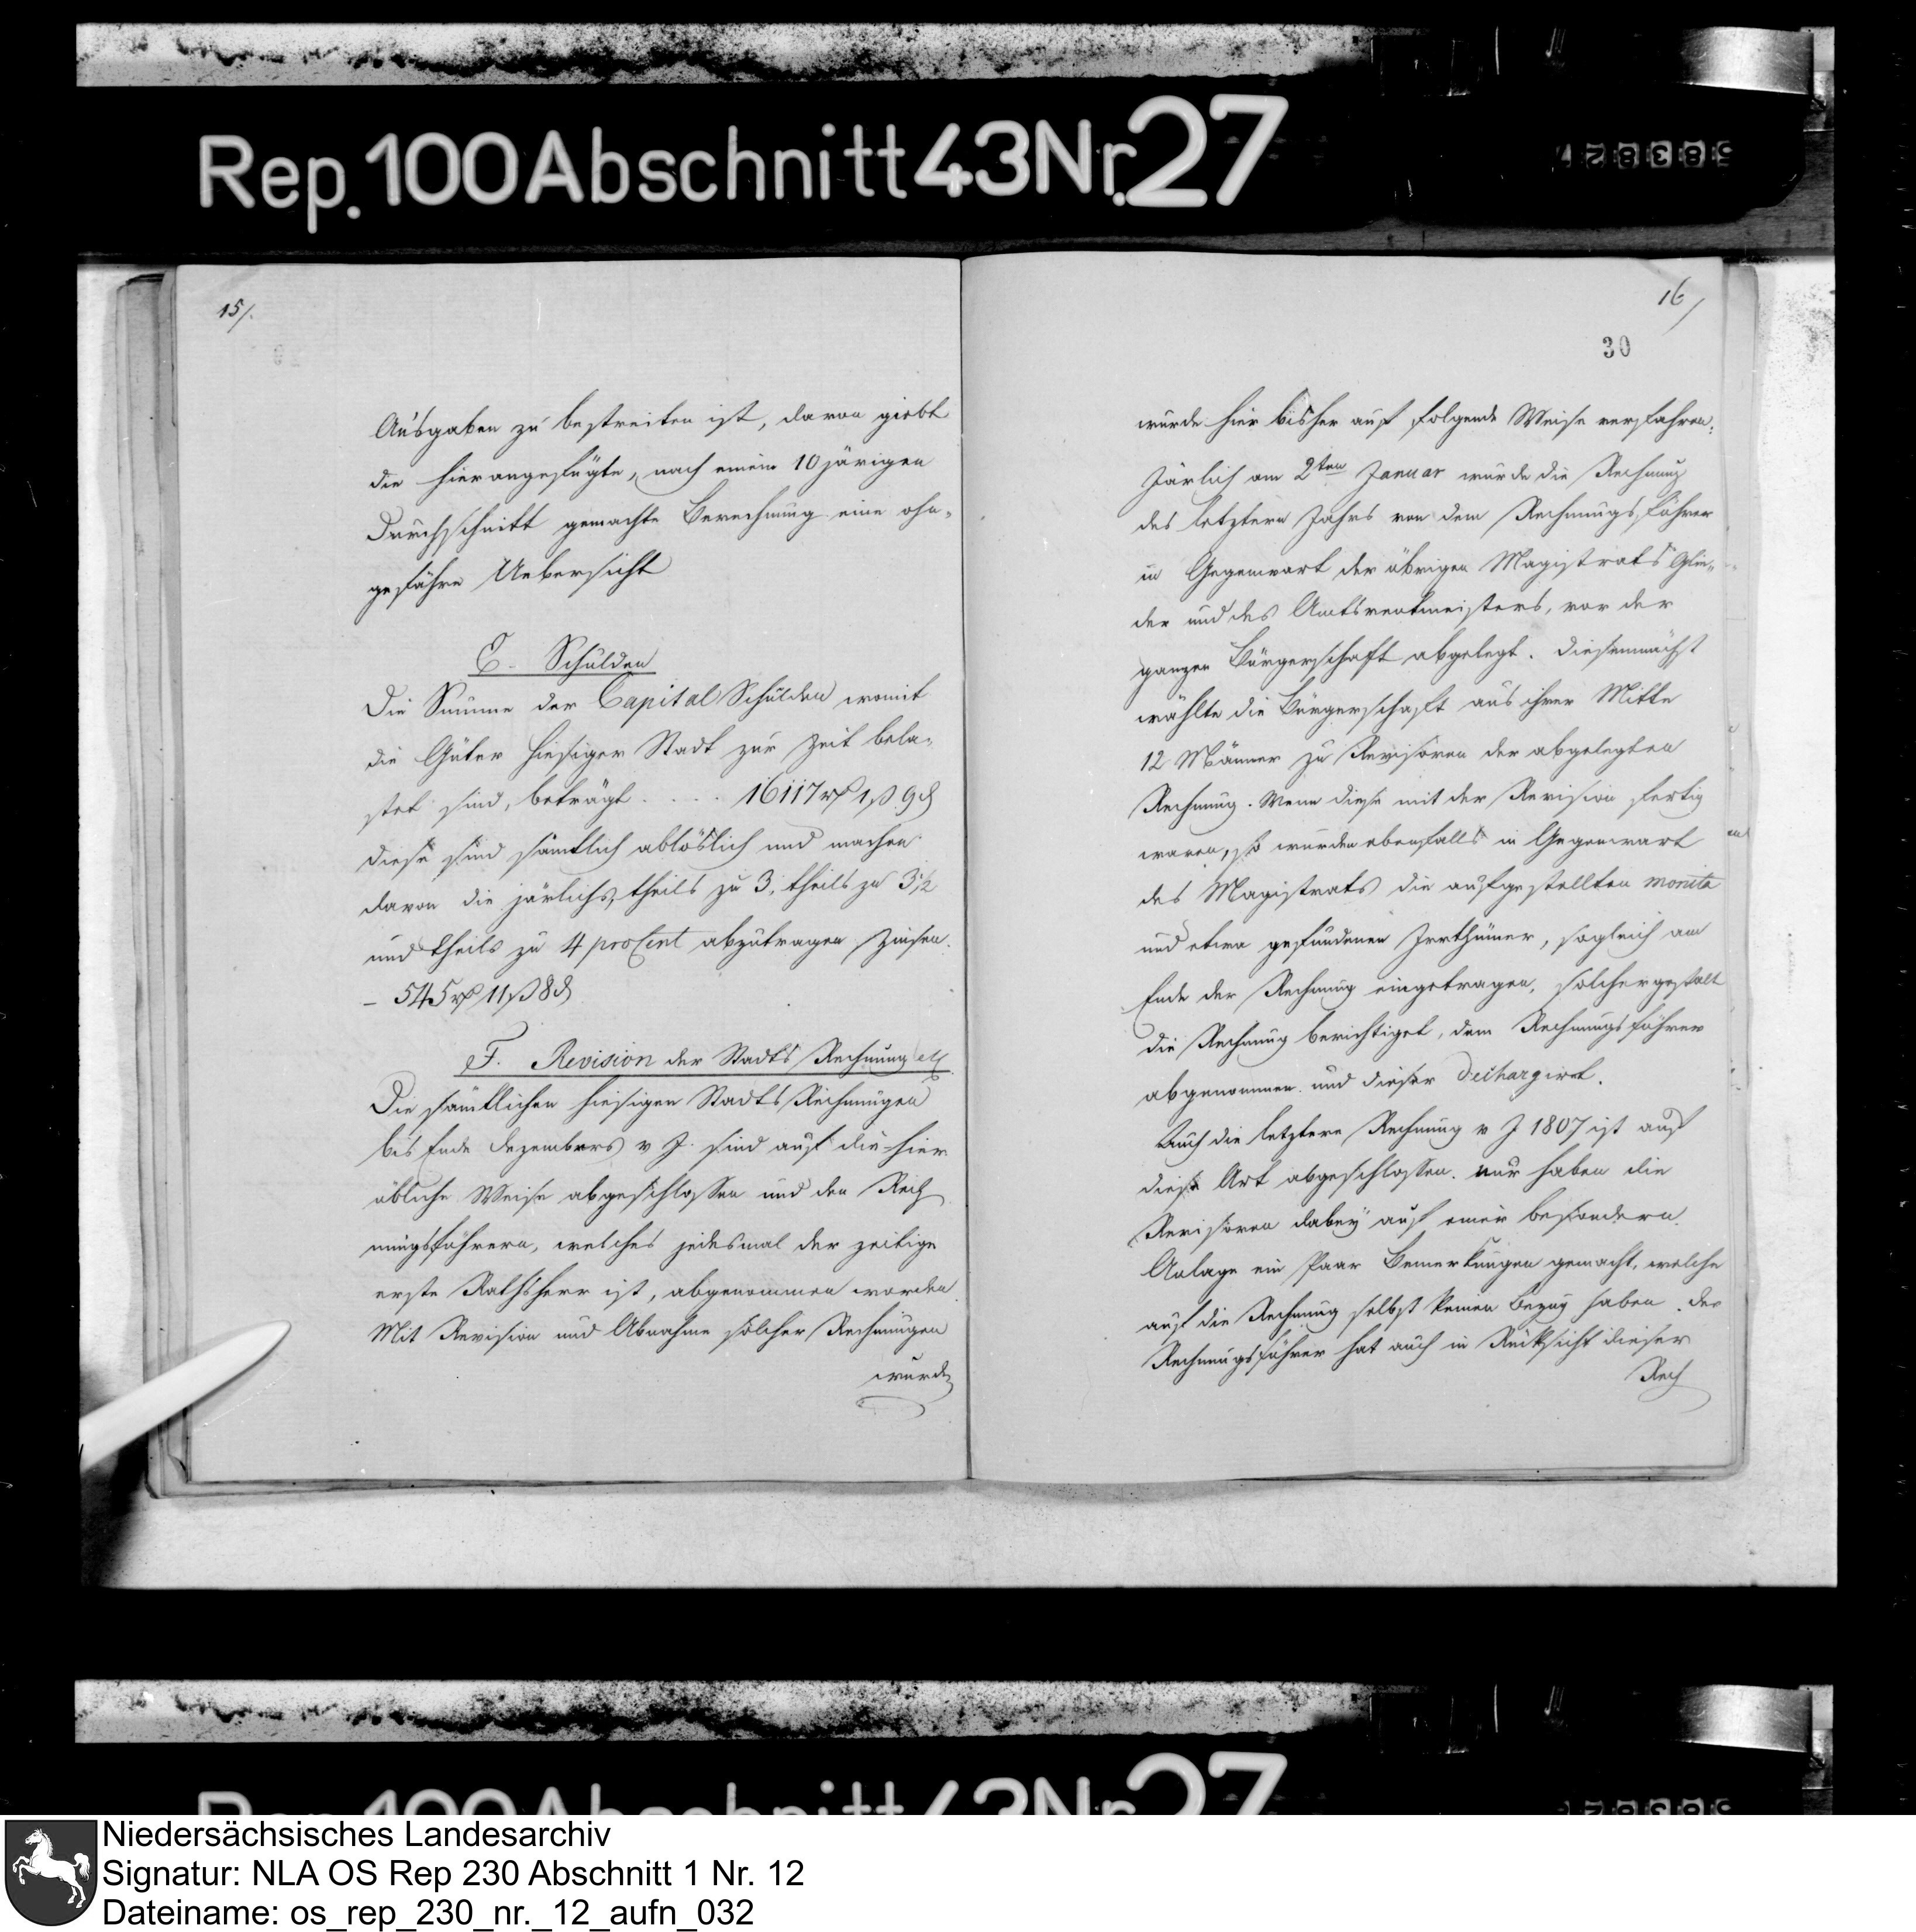 Rep. 100 Abschnitt 43 Nr. 27
15/.
Ausgaben zu bestreiten ist, davon giebt
die hierangefügte, nach einem 10järigen
Durchschnitt gemachte Berechnung eine ohn-
gefähre Uebersicht
E. Schulden
Die Summe der Capital Schulden womit
die Güter hiesiger Stadt zur Zeit bela-
stet sind, beträgt . . . . 16117 rß 1 ß 9 d
diese sind sämtlich ablöslich und machen
davon die järlichs, theils zu 3, theils zu 3½
und theils zu 4 proCent abzutragen Zinsen.
– 545 rß 11 ß 8 d
F. Revision der Stadts Rechnung etc
Die sämtlichen hiesigen Stadts Rechnungen
bis Ende Dezembers v J. sind auf die hier
übliche Weise abgeschlossen und den Rech
nungsführern, welches jedesmal der zeitige
erste Rathsherr ist, abgenommen worden.
Mit Revision und Abnahme solcher Rechnungen
wurde
16/
30
wurde hier bisher auf folgende Weise verfahren:
Järlich am 2ten Januar wurde die Rechnung
des letztern Jahrs von dem Rechnungsführer
in Gegenwart der übrigen Magistrats Glie-
der und des Amtsrentmeisters, vor der
ganzen Bürgerschaft abgelegt. diesemnächst
wählte die Bürgerschaft aus ihrer Mitte
12 Männer zu Revisoren der abgelegten
Rechnung. Wenn diese mit der Revision fertig
waren, so wurden ebenfalls in Gegenwart
des Magistrats die aufgestellten monita
und etwa gefundenen Irrthümer, sogleich am
Ende der Rechnung eingetragen, solchergestalt
die Rechnung berichtiget, dem Rechnungsführer
abgenommen und dieser dechargirt.
Auch die letztere Rechnung v J 1807 ist auf
diese Art abgeschlossen. nur haben die
Revisoren dabey auf einer besondern
Anlage ein Paar Bemerkungen gemacht, welche
auf die Rechnung selbst keinen Bezug haben. Der
Rechnungsführer hat auch in Rücksicht dieser
Rech
Niedersächsisches Landesarchiv
Signatur: NLA OS Rep 230 Abschnitt 1 Nr. 12
Dateiname: os_rep_230_nr._12_aufn_032